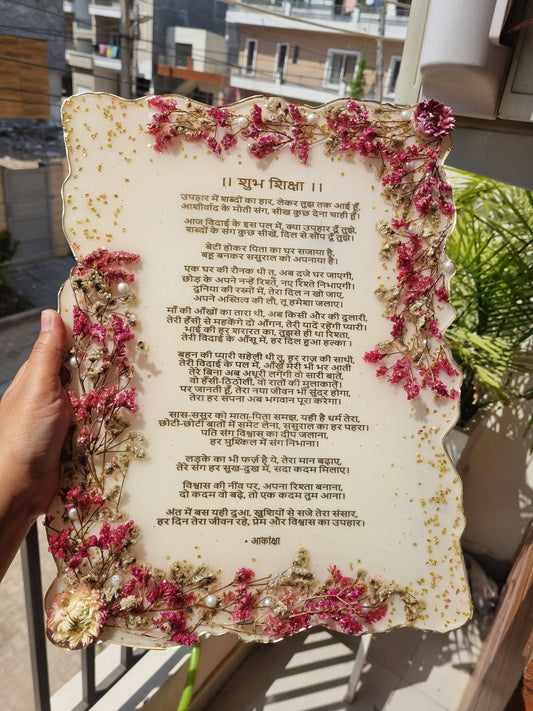 ॥ शुभ शिक्षा ॥
उपहार में शब्दों का हार, लेकर तुझ तक आई हूँ,
आशीर्वाद के मोती संग, सीख कुछ देना चाही हूँ।
आज विदाई के इस पल में, क्या उपहार दूँ तुझे,
शब्दों के संग कुछ सीखें, दिल से सौंप दूँ तुझे।
बेटी होकर पिता का घर सजाया है,
बहू बनकर ससुराल को अपनाया है।
एक घर की रौनक थी तू, अब दूजे घर जाएगी,
छोड़ के अपने नन्हें रिश्ते, नए रिश्ते निभाएगी।
दुनिया की रस्मों में, तेरा दिल न खो जाए,
अपने अस्तित्व की लौ, तू हमेशा जलाए।
माँ की आँखों का तारा थी, अब किसी और की दुलारी,
तेरी हँसी से महकेंगे दो आँगन, तेरी यादें रहेंगी प्यारी।
भाई की हर शरारत का, तुझसे ही था रिश्ता,
तेरी विदाई के आँसू में, हर दिल हुआ हल्का।
बहन की प्यारी सहेली थी तू, हर राज़ की साथी,
तेरी विदाई के पल में, आँखें मेरी भी भर आती
तेरे बिना अब अधूरी लगेंगी वो सारी बातें,
वो हँसी-ठिठोली, वो रातों की मुलाकातें।
पर जानती हूँ, तेरा नया जीवन भी सुंदर होगा,
तेरा हर सपना अब भगवान पूरा करेगा।
सास-ससुर को माता-पिता समझ, यही है धर्म तेरा,
छोटी-छोटी बातों में समेट लेना, ससुराल का हर पहरा।
पति संग विश्वास का दीप जलाना,
हर मुश्किल में संग निभाना।
लड़के का भी फर्ज़ है ये, तेरा मान बढ़ाए,
तेरे संग हर सुख-दुख में, सदा कदम मिलाए।
विश्वास की नींव पर, अपना रिश्ता बनाना,
दो कदम वो बढ़े, तो एक कदम तुम आना।
अंत में बस यही दुआ, खुशियों से सजे तेरा संसार,
हर दिन तेरा जीवन रहे, प्रेम और विश्वास का उपहार।
• आकांक्षा